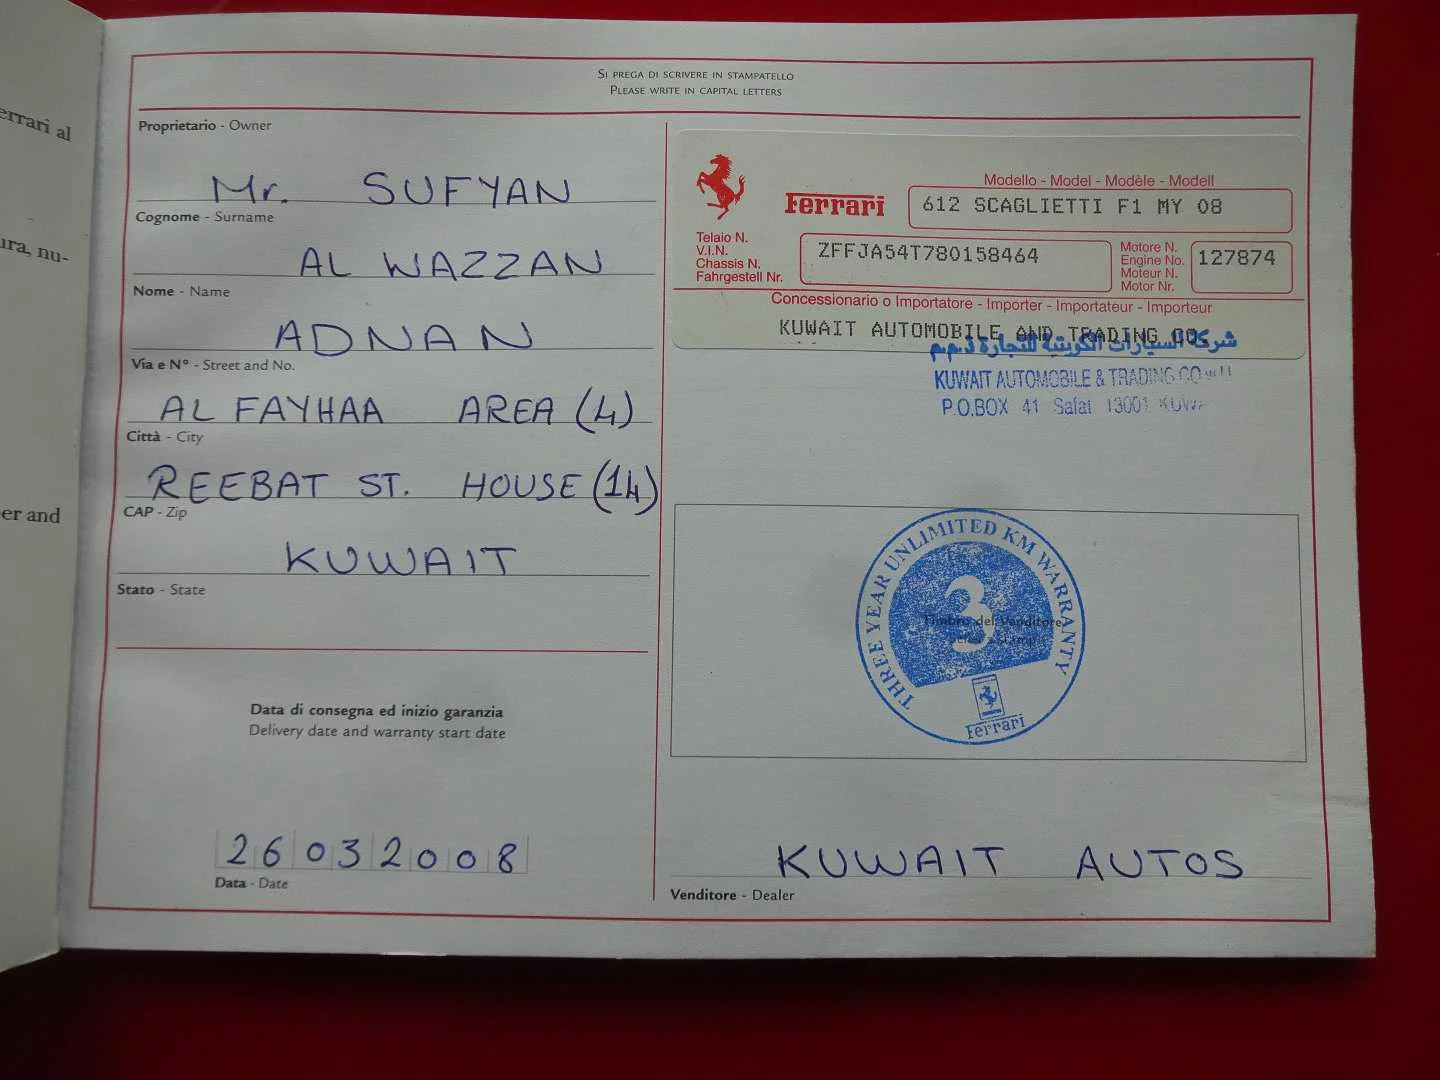 errari al
ura, nu-
er and
SI PREGA DI SCRIVERE IN STAMPATELLO
PLEASE WRITE IN CAPITAL LETTERS
Proprietario - Owner
Mr. SUFYAN
Cognome - Surname
AL WAZZAN
Nome - Name
ADNAN
Via e N° - Street and No.
AL FAYHAA AREA (4)
Città - City
REEBAT ST. HOUSE (14)
CAP - Zip
KUWAIT
Stato - State
Data di consegna ed inizio garanzia
Delivery date and warranty start date
26032008
Data - Date
Modello - Model - Modèle - Modell
Ferrari
612 SCAGLIETTI F1 MY 08
Telaio N.
V.I.N.
Chassis N.
Fahrgestell Nr.
ZFFJA54T780158464
Motore N.
Engine No.
Moteur N.
Motor Nr.
127874
Concessionario o Importatore - Importer - Importateur - Importeur
KUWAIT AUTOMOBILE AND TRADING CO.
شركة السيارات الكويتية للتجارة ذ.م.م
KUWAIT AUTOMOBILE & TRADING CO
P.O.BOX 41 Safat 13001
THREE YEAR UNLIMITED KM WARRANTY
3
Timbro del Venditore
Ferrari
KUWAIT AUTOS
Venditore - Dealer